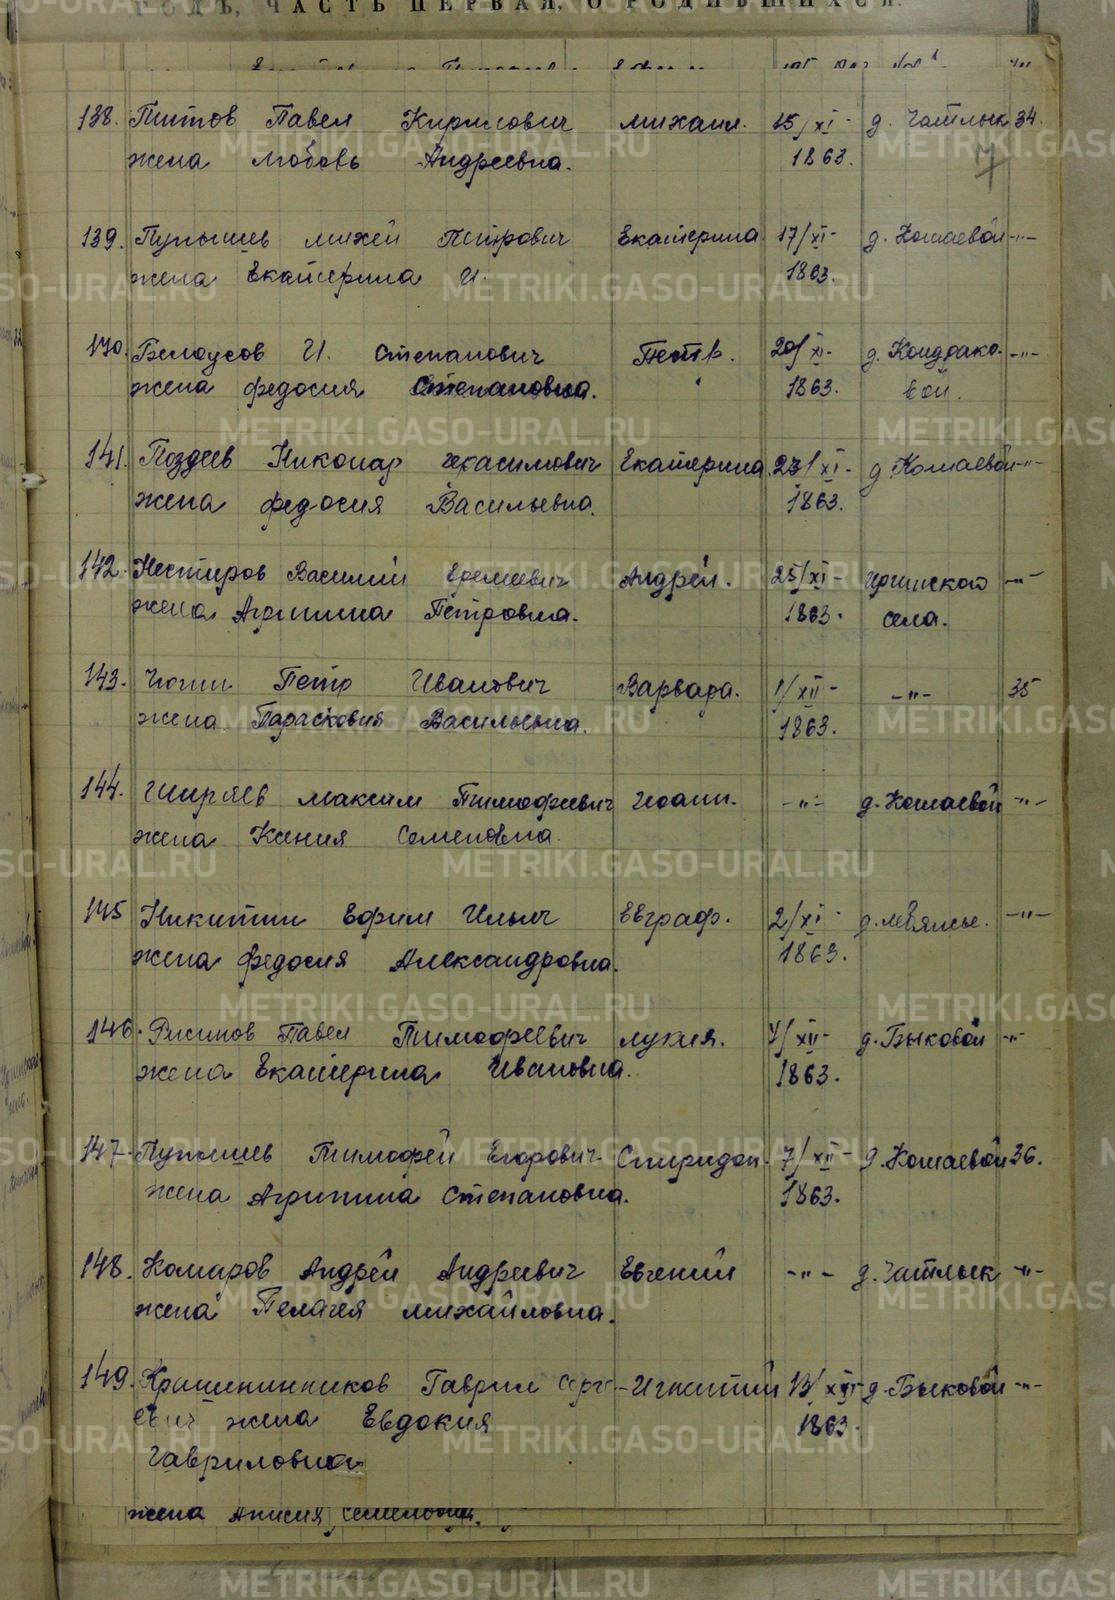 ЧАСТЬ ПЕРВАЯ, О РОДИВШИХСЯ.
138. Титов Павел Кирилович Михаил. 15/XI- д. Чатлык 34.
жена Любовь Андреевна. 1863.
139. Пупышев Михей Петрович Екатерина 17/XI- д. Кошаевой -"-
жена Екатерина И. 1863.
140. Белоусов И. Степанович Петр. 20/XI- д. Кондрако- -"-
жена Федосия Степановна. 1863. вой.
141. Поздеев Никонар Герасимович Екатерина 23/XI- д Кошаевой -"-
жена Федосия Васильевна. 1863.
142. Нестиров Василий Еремеевич Андрей. 25/XI- Иргинского -"-
жена Агрипина Петровна. 1863. села.
143. Петр Иванович Варвара. 1/XII- -"- 35
жена Парасковия Васильевна. 1863.
144. Ширяев Максим Тимофеевич Иоанн. -"- д. Кошаевой -"-
жена Ксения Семеновна.
145 Никитин Ефим Ильич Евграф. 2/XI- -"-
жена Федосия Александровна. 1863.
146. Павел Тимофеевич Лукия. 4/XII- д. Быковой -"-
жена Екатерина Ивановна. 1863.
147. Пупышев Тимофей Егорович Спиридон. 7/XII- д. Кошаевой 36.
жена Агрипина Степановна. 1863.
148. Комаров Андрей Андреевич Евгений -"- д. Чатлык -"-
жена Пелагея Михайловна.
149. Крашенинников Гаврил Серге- Игнатий 13/XII- д. Быковой -"-
евич жена Евдокия 1863.
Гавриловна
жена Анисия Семеновна.
METRIKI.GASO-URAL.RU